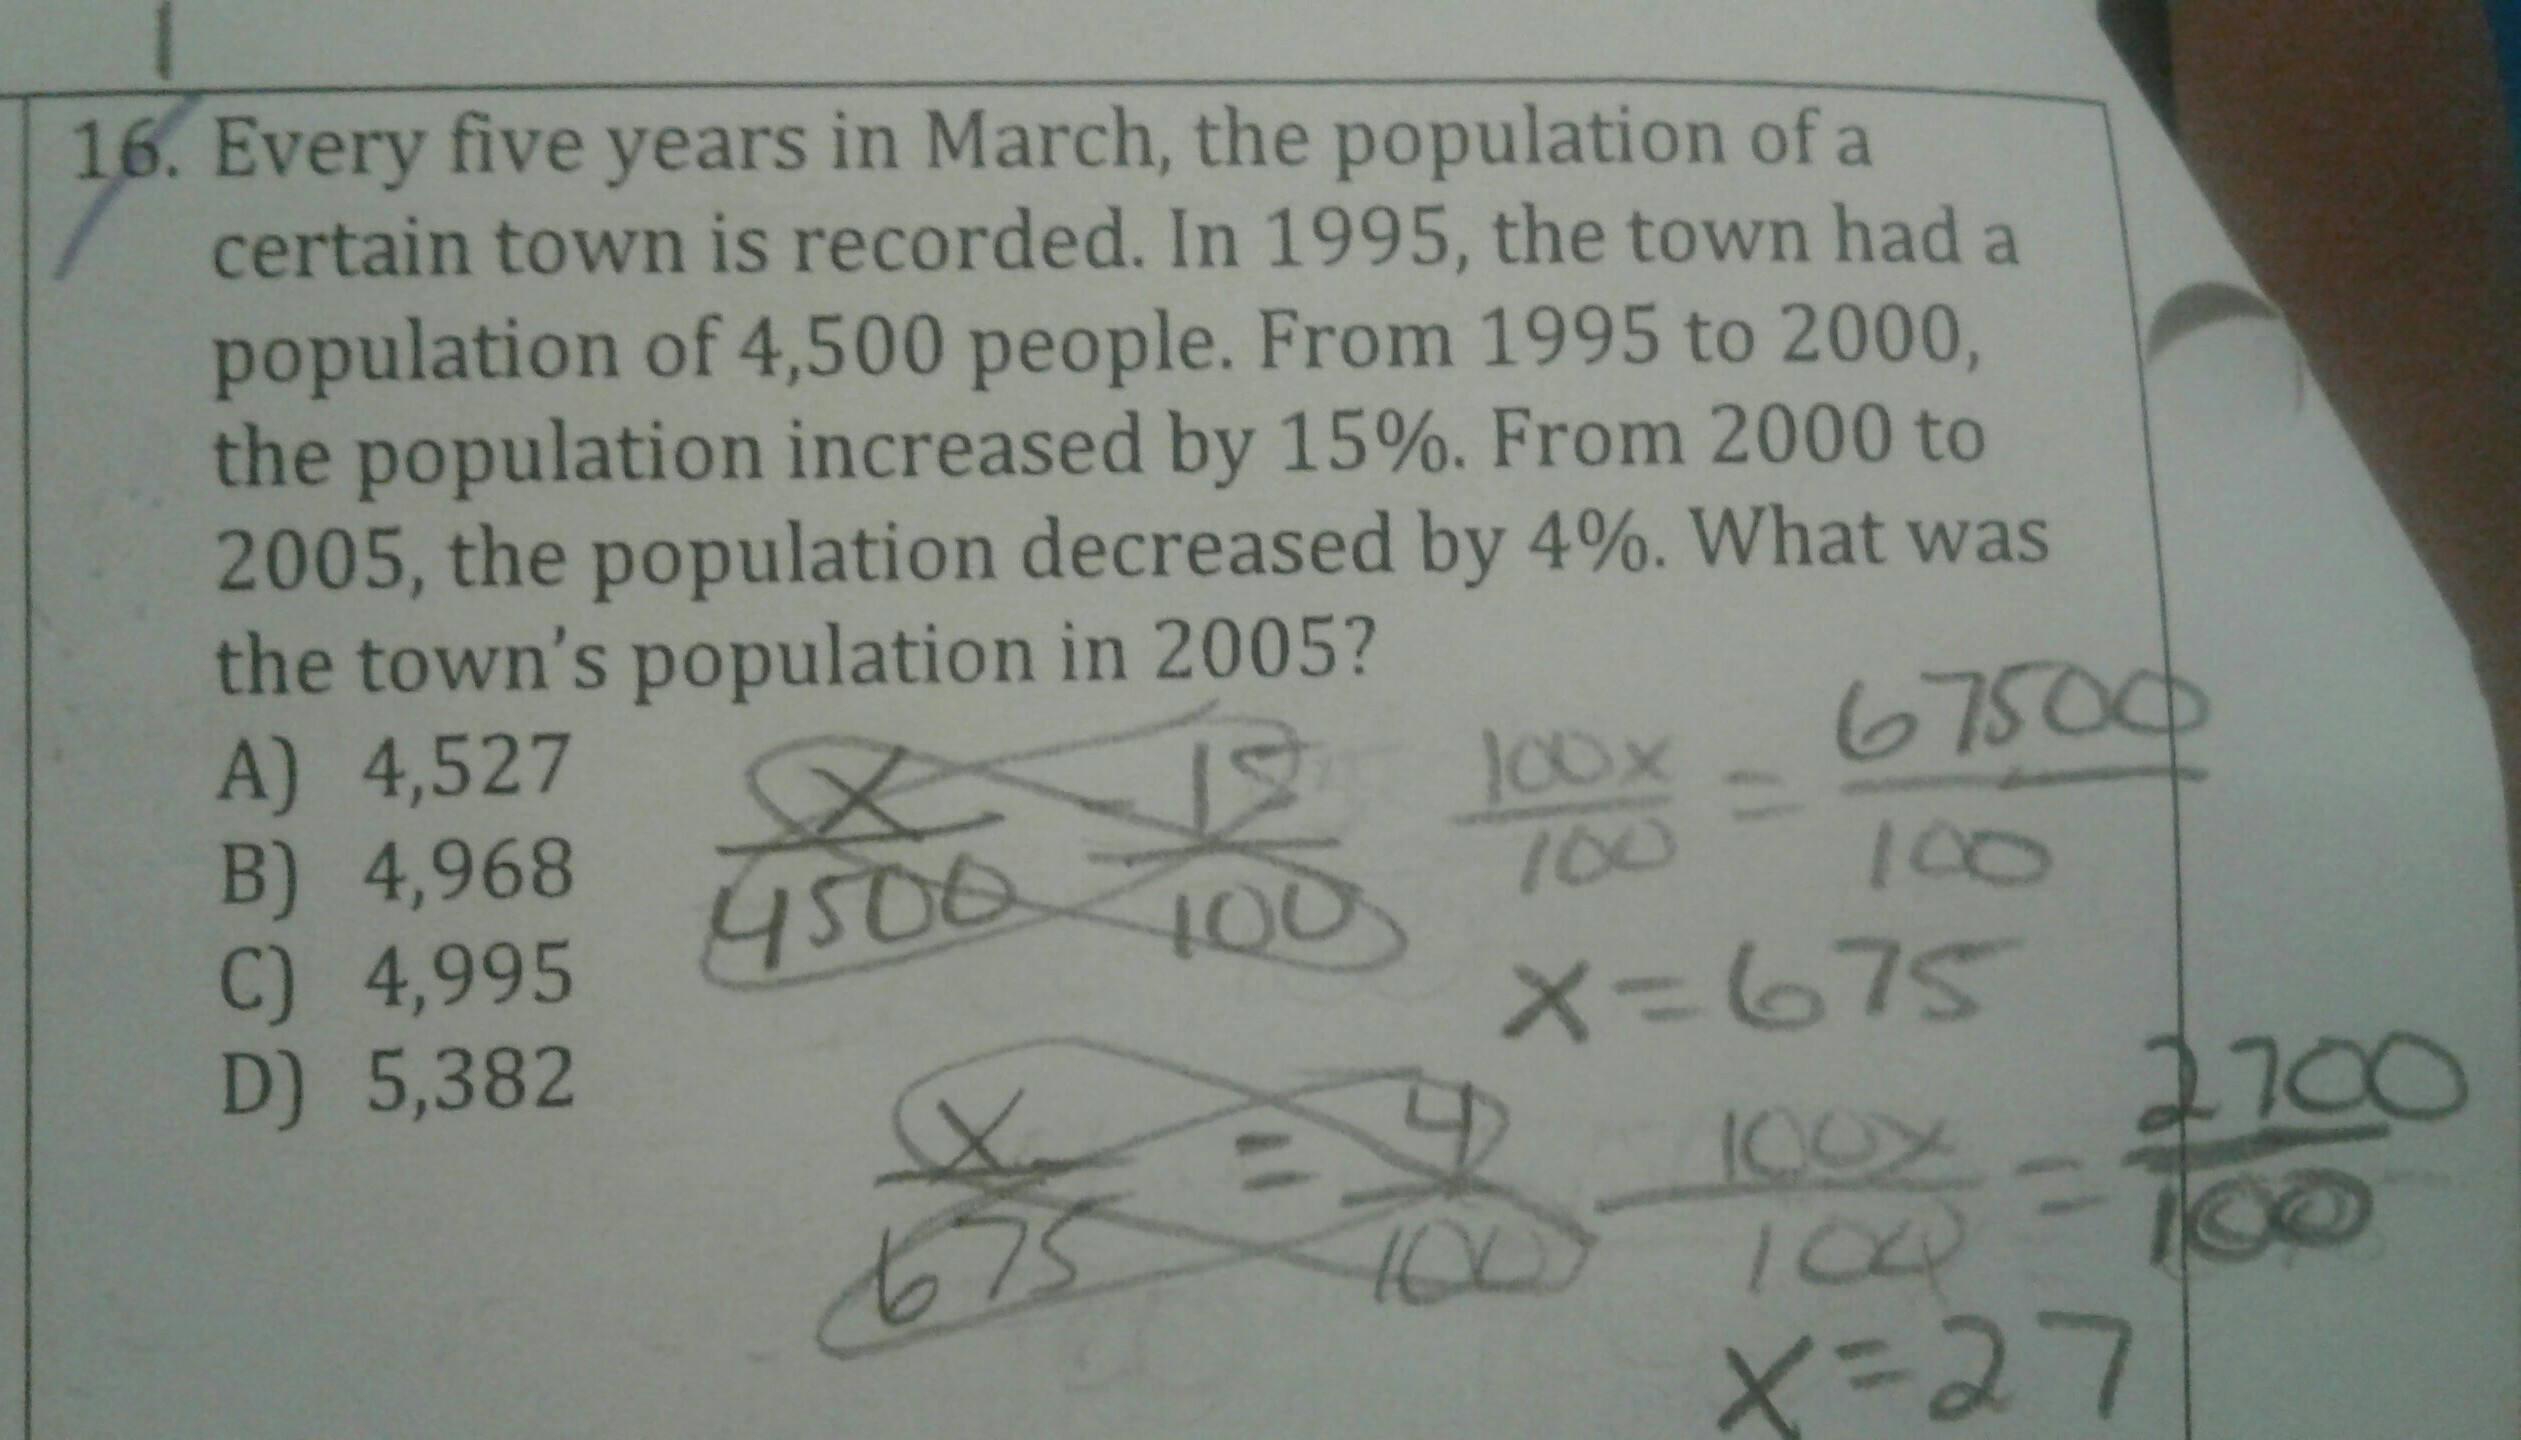 16. Every five years in March, the population of a
certain town is recorded. In 1995, the town had a
population of 4,500 people. From 1995 to 2000,
the population increased by 15%. From 2000 to
2005, the population decreased by 4%. What was
the town's population in 2005?
A) 4,527
B) 4,968
C) 4,995
D) 5,382
x/4500 = 15/100
100x/100 = 67500/100
x=675
x/675 = 4/100
100x/100 = 2700/100
x=27